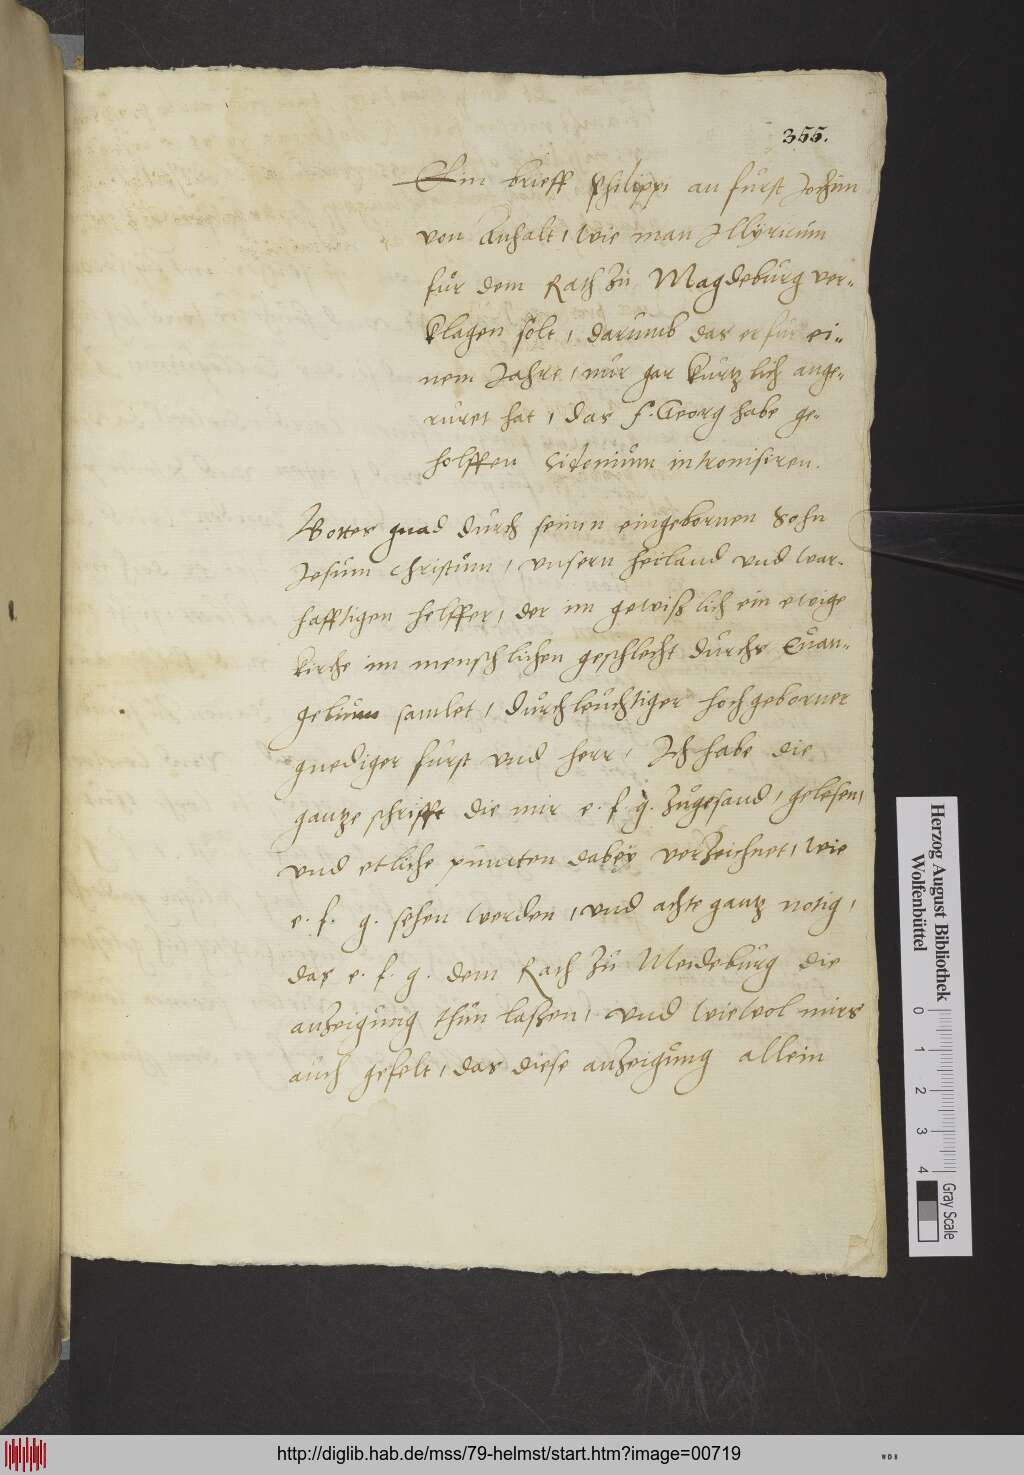 355.
Ein brieff Philippi an furst Jochim
von Anhalt, wie man Illyricum
für dem Rath zu Magdeburg ver-
klagen solt, darumb das er für ei-
nem Jahre, nur gar kurtzlich ange-
ruret hat, das f. Georg habe ge-
holffen Sidonium intronisiren.
Gottes gnad durch seinen eingebornen Sohn
Jesum Christum, unsern heiland und war-
hafftigen helffer, der im gewißlich ein ewige
kirche im menschlichen geschlecht durchs Euan-
gelium samlet, durchleuchtiger hochgeborner
gnediger furst und herr, Ich habe die
gantze schrifft die mir e. f. g. zugesand, gelesen,
und etliche puncten dabey verzeichnet, wie
e. f. g. sehen werden, und achte gantz notig,
das e. f. g. dem Rath zu Meideburg die
anzeigung thun laßen, und wiewol mirs
auch gefelt, das diese anzeigung allein
Herzog August Bibliothek
Wolfenbüttel
0 1 2 3 4
Gray Scale
http://diglib.hab.de/mss/79-helmst/start.htm?image=00719
WDB